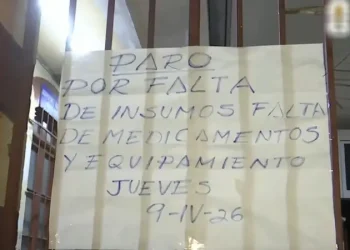 PARO
POR FALTA
DE INSUMOS FALTA
DE MEDICAMENTOS
Y EQUIPAMIENTO
JUEVES
9-IV-26